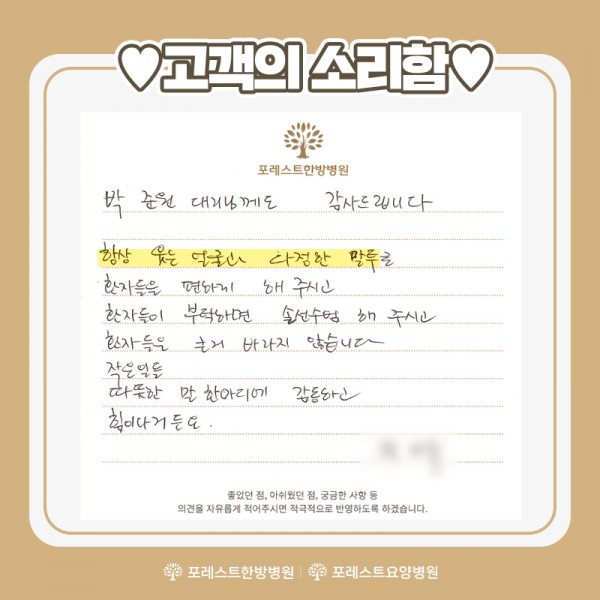 ♥고객의 소리함♥
포레스트한방병원
박 준원 대리님께도 감사드립니다
항상 웃는 얼굴과 다정한 말투로
환자들을 편하게 해 주시고
환자들이 부탁하면 솔선수범 해 주시고
환자들은 큰거 바라지 않습니다
작은일들
따뜻한 말 한마디에 감동하고
힘이나거든요.
좋았던 점, 아쉬웠던 점, 궁금한 사항 등
의견을 자유롭게 적어주시면 적극적으로 반영하도록 하겠습니다.
포레스트한방병원 | 포레스트요양병원